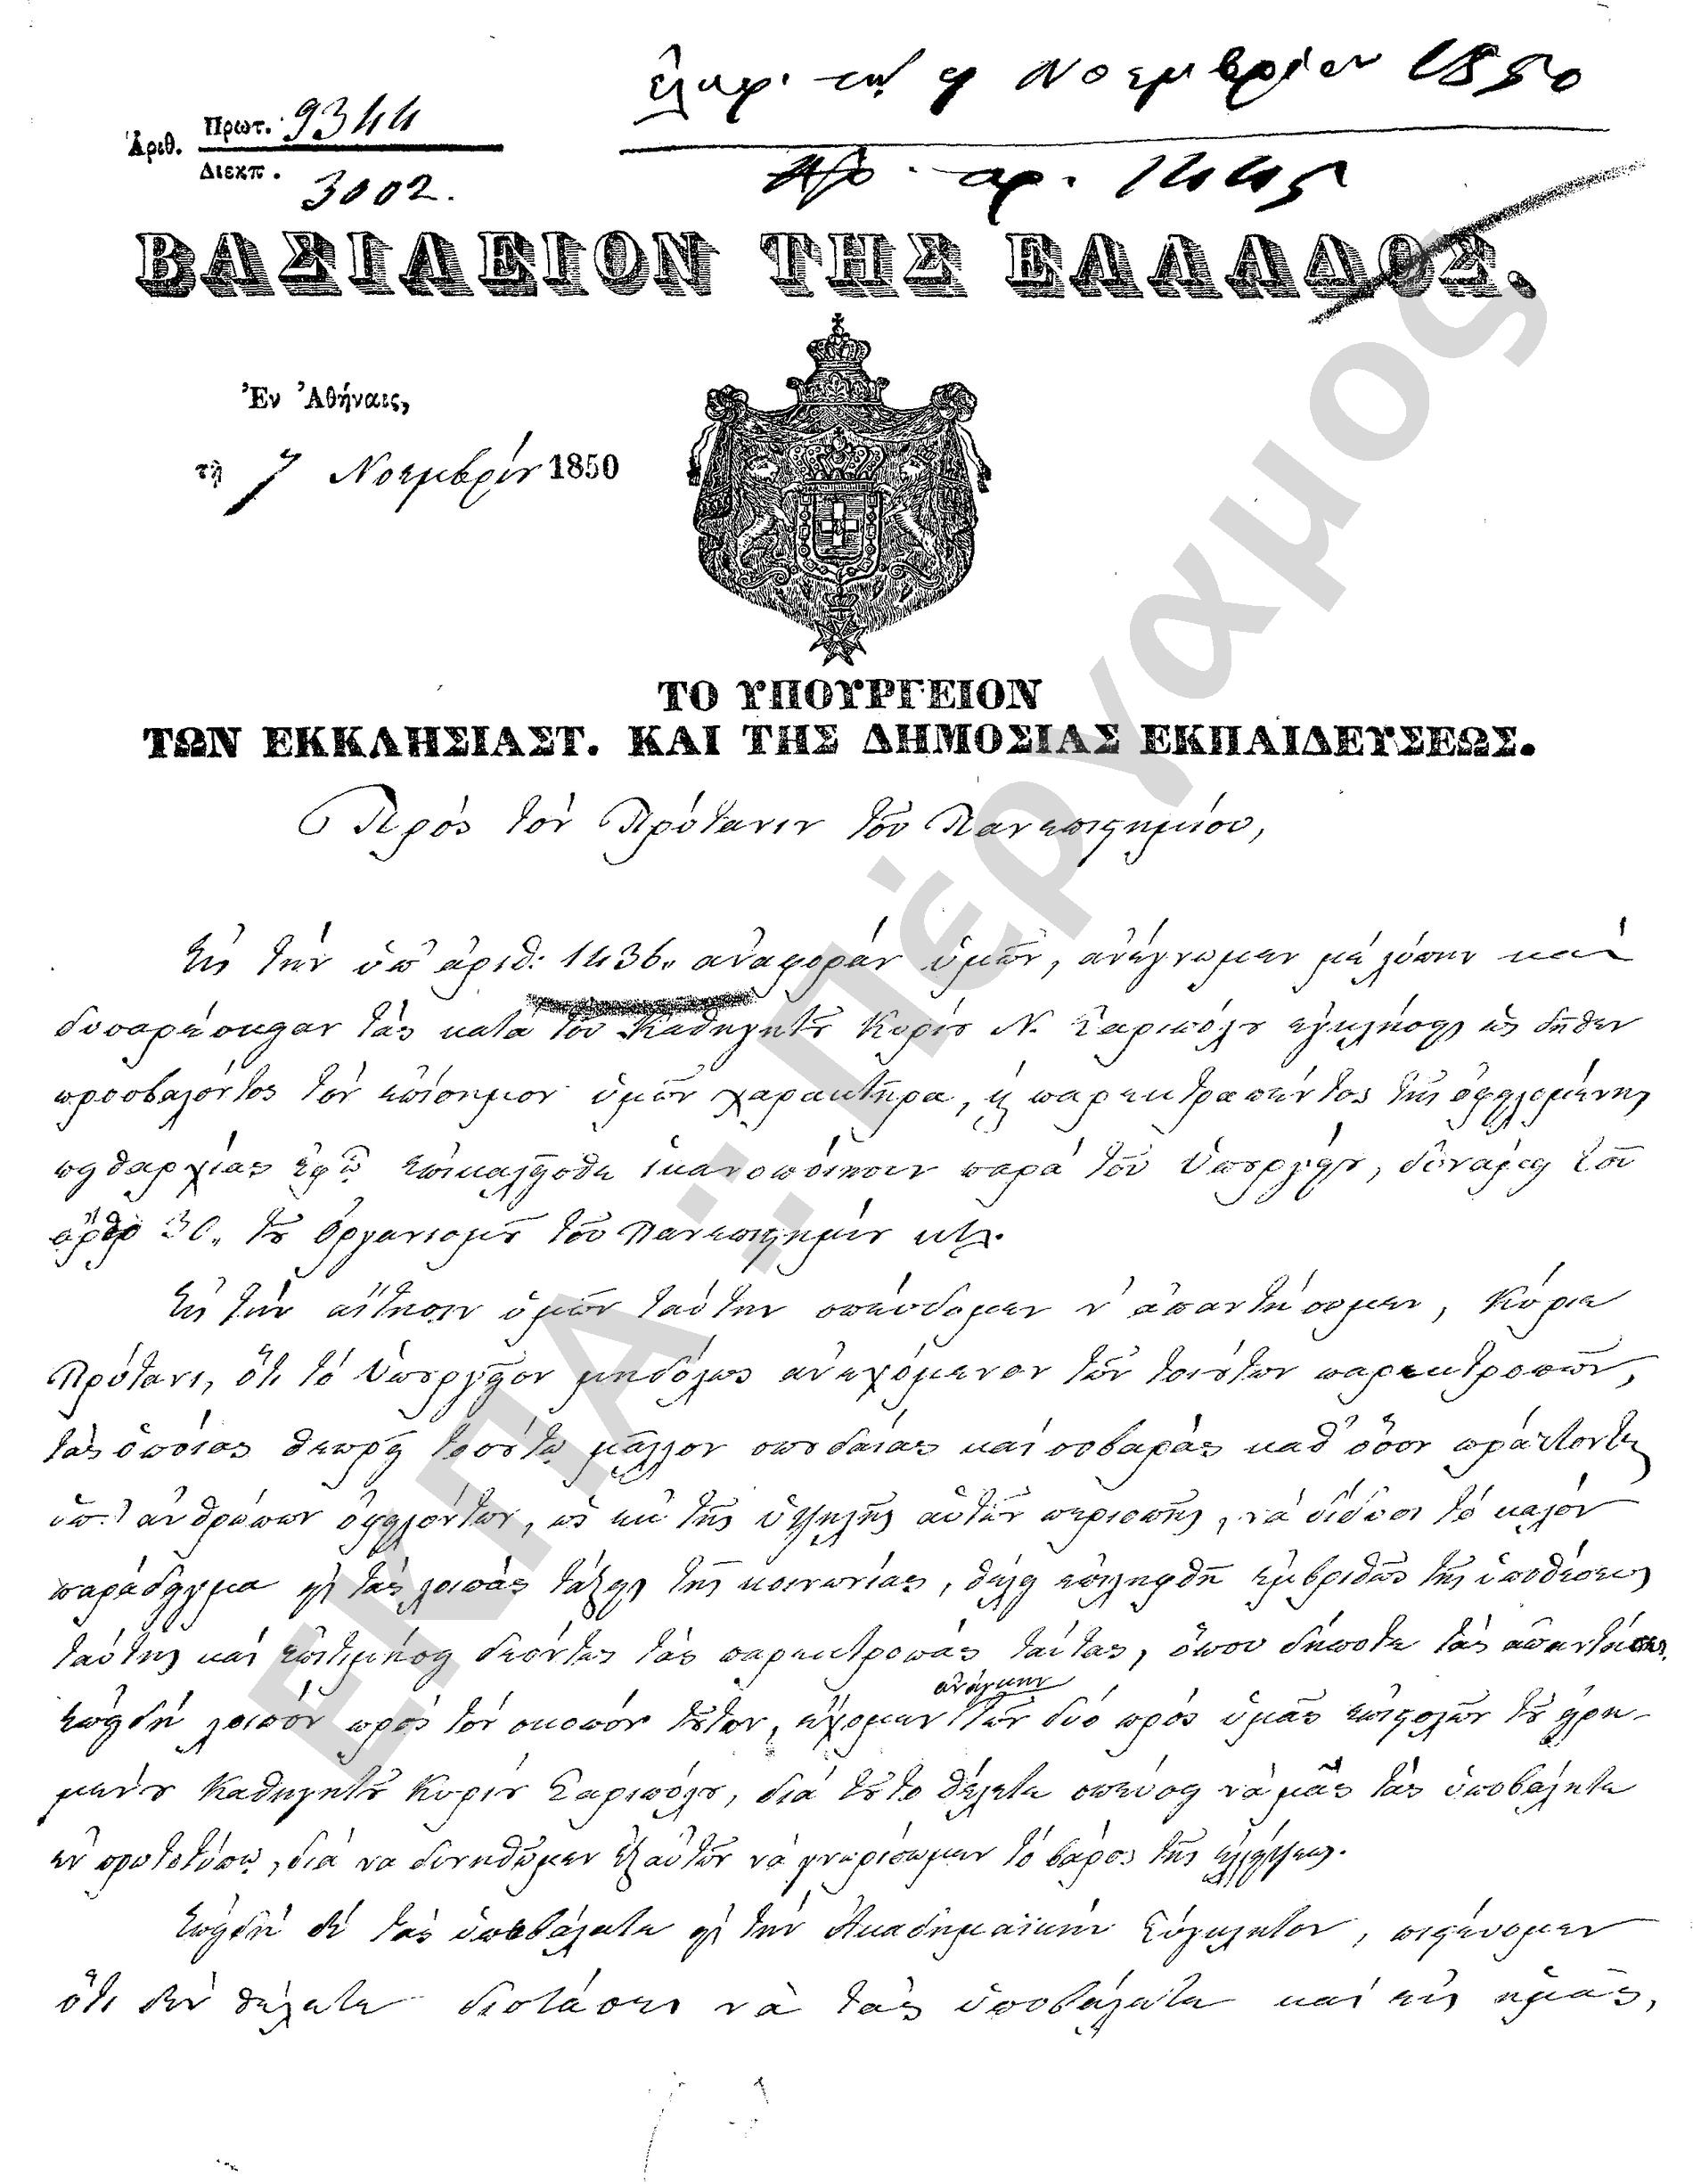 ἐλήφ. τῇ 9 Νοεμβρίου 1850
Ἀριθ. Πρωτ. 9344
Διεκπ. 3002.
πρ. ἀρ. 1445
ΒΑΣΙΛΕΙΟΝ ΤΗΣ ΕΛΛΑΔΟΣ,
Ἐν Ἀθήναις,
τῇ 7 Νοεμβρίου 1850
ΤΟ ΥΠΟΥΡΓΕΙΟΝ
ΤΩΝ ΕΚΚΛΗΣΙΑΣΤ. ΚΑΙ ΤΗΣ ΔΗΜΟΣΙΑΣ ΕΚΠΑΙΔΕΥΣΕΩΣ.
Πρὸς τὸν Πρύτανιν τοῦ Πανεπιστημίου,
Εἰς τὴν ὑπ' ἀριθ: 1436. ἀναφορὰν ὑμῶν, ἀνέγνωμεν μὲ λύπην καὶ
δυσαρέσκειαν τὰς κατὰ τοῦ Καθηγητοῦ Κυρίου Ν. Σαριπόλου ἐγκλήσεις ὡς δῆθεν
προσβαλόντος τὸν ἐπίσημον ὑμῶν χαρακτῆρα, καὶ παρεκτραπέντος τῆς ὀφειλομένης
πειθαρχίας ἐφ' ᾧ ἐπικαλεῖσθε ἱκανοποίησιν παρὰ τοῦ Ὑπουργείου, δυνάμει τοῦ
ἄρθρ 30. τοῦ Ὀργανισμοῦ τοῦ Πανεπιστημίου κτλ.
Εἰς τὴν αἴτησιν ὑμῶν ταύτην σπεύδομεν ν' ἀπαντήσωμεν, Κύριε
Πρύτανι, ὅτι τὸ Ὑπουργεῖον μηδόλως ἀνεχόμενον τῶν τοιούτων παρεκτροπῶν,
τὰς ὁποίας θεωρεῖ τοσούτῳ μᾶλλον σπουδαίας καὶ σοβαρὰς καθ' ὅσον πράττονται
ὑπ' ἀνθρώπων ὀφειλόντων, ὡς ἐκ τῆς ὑψηλῆς αὐτῶν περιωπῆς, νὰ δίδωσι τὸ καλὸν
παράδειγμα εἰς τὰς λοιπὰς τάξεις τῆς κοινωνίας, θέλει ἐπιληφθῆ ἐμβριθῶς τῆς ὑποθέσεως
ταύτης καὶ ἐπιτιμήσει δεόντως τὰς παρεκτροπὰς ταύτας, ὅπου δήποτε τὰς ἀπαντήσει.
Ἐπειδὴ λοιπὸν πρὸς τὸν σκοπὸν τοῦτον, ἔχομεν ἀνάγκην τῶν δύο πρὸς ὑμᾶς ἐπιστολῶν τοῦ εἰρη-
μένου Καθηγητοῦ Κυρίου Σαριπόλου, διὰ τοῦτο θέλετε σπεύσει νὰ μᾶς τὰς ὑποβάλητε
ἐν πρωτοτύπῳ, διὰ νὰ δυνηθῶμεν ἐξ αὐτῶν νὰ γνωρίσωμεν τὸ βάρος τῆς
Ἐπειδὴ δὲ τὰς ὑπεβάλετε εἰς τὴν Ἀκαδημαϊκὴν Σύγκλητον, πιστεύομεν
ὅτι δὲν θέλετε διστάσει νὰ τὰς ὑποβάλητε καὶ εἰς ἡμᾶς,
ΕΚΠΑ :: Πέργαμος